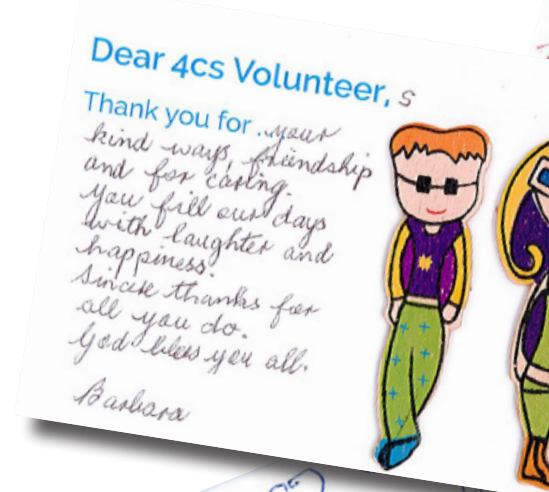 Dear 4cs Volunteer, s
Thank you for ...your
kind ways, friendship
and for caring.
You fill our days
with laughter and
happiness.
Sincere thanks for
all you do.
God bless you all.
Barbara